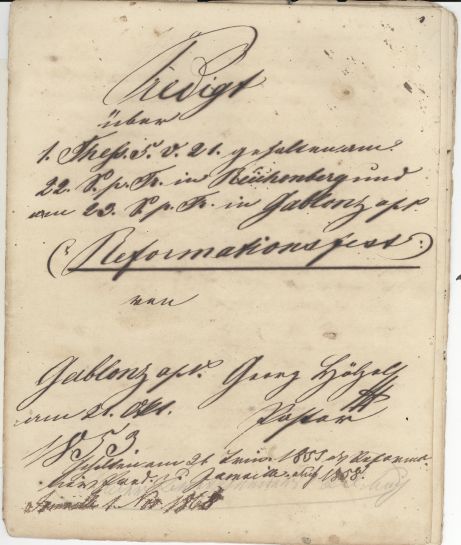 Predigt
über
1. Thess. 5. V. 21. gehalten am
22. S. p. Tr. in Reichenberg und
am 23. S. p. Tr. in Gablonz a/N.
(: Reformationsfest :)
von
Gablonz a/N. Georg Hötzel
am 21. Okt. Pastor
1853
gehalten am 26. 1855 als Reforma
1858.
1. Nov 1868